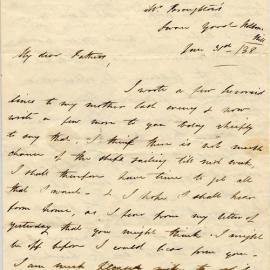 Mr Broughton's
My dear Father,
I wrote a few hurried
lines to my mother last evening & now
write a few more to you today chiefly
to say that. I think there is not much
chance of the ship sailing till next week
I shall therefore have time to get all
that I want - & I hope I shall hear
from home, as I fear from my letter of
yesterday that you might think I might
be off before I could hear from you -
I am much